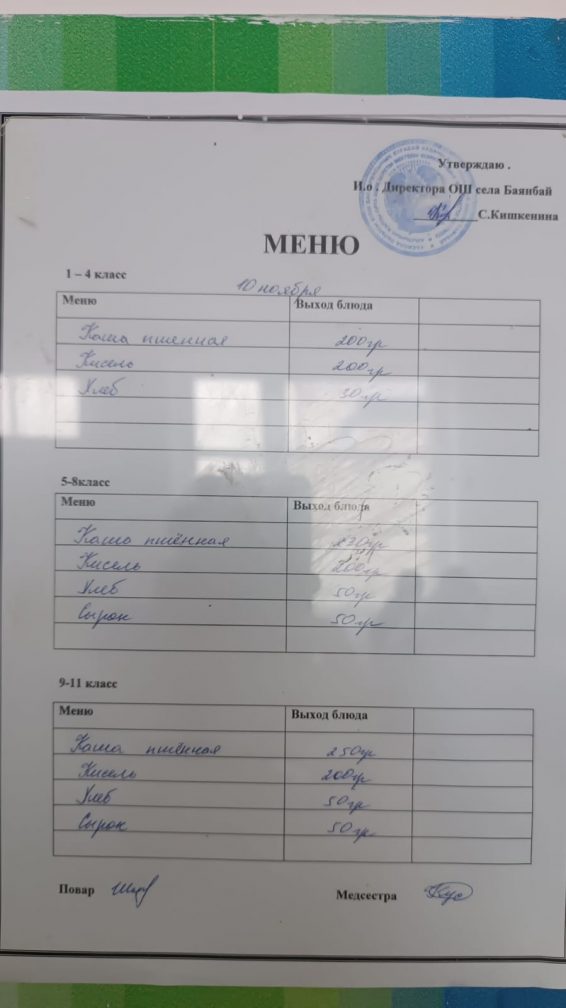 Утверждаю .
И.о . Директора ОШ села Баянбай
С.Кишкенина
МЕНЮ
1 – 4 класс
10 ноября
Меню Выход блюда
Каша пшенная 200гр
Кисель 200гр
Хлеб 30гр
5-8класс
Меню Выход блюда
Каша пшённая 250гр
Кисель 200гр
Хлеб 50гр
Сырок 50гр
9-11 класс
Меню Выход блюда
Каша пшённая 250гр
Кисель 200гр
Хлеб 50гр
Сырок 50гр
Повар
Медсестра